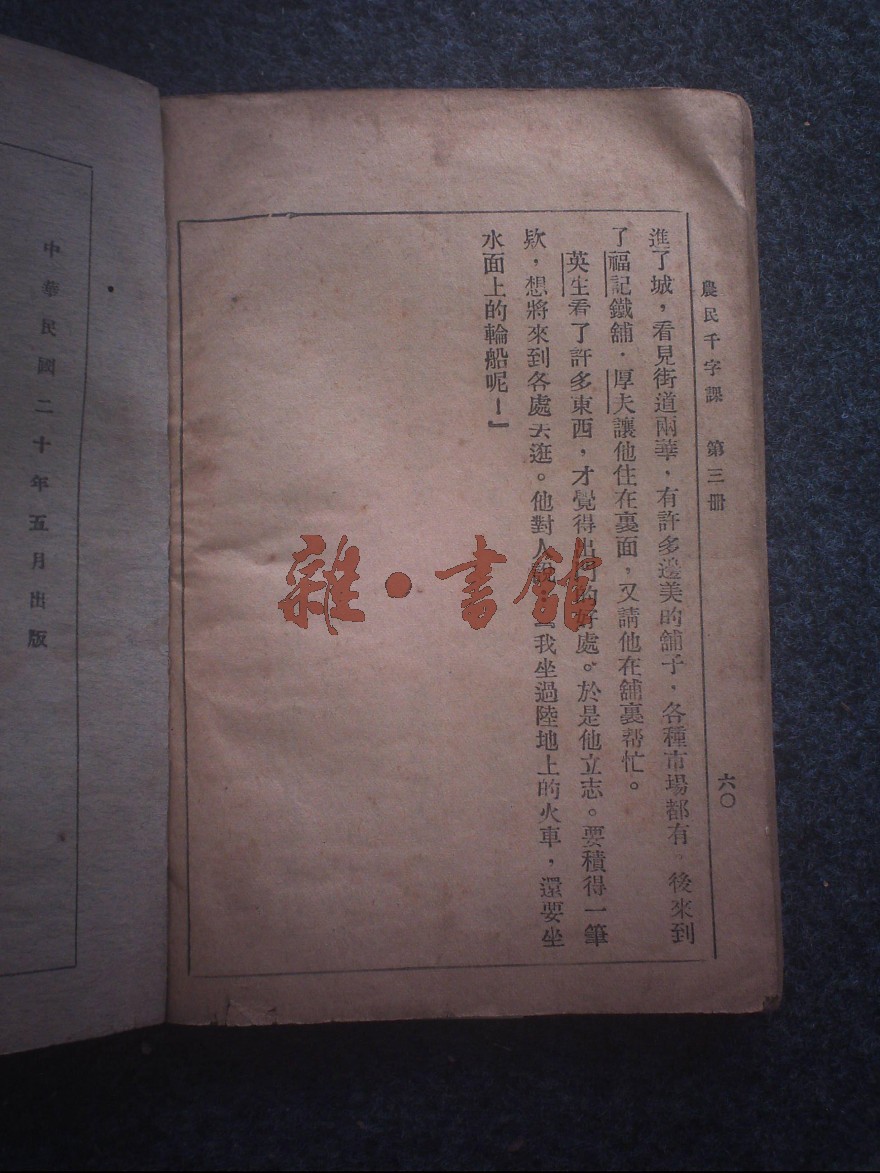 農民千字課 第三冊 六〇
進了城，看見街道兩華，有許多邊美的舖子，各種市場都有。後來到
了福記鐵舖。厚夫讓他住在裏面，又請他在舖裏帮忙。
英生看了許多東西，才覺得出門的好處。於是他立志。要積得一筆
欵，想將來到各處去逛。他對人說：『我坐過陸地上的火車，還要坐
水面上的輪船呢！』
中華民國二十年五月出版
雜·書館